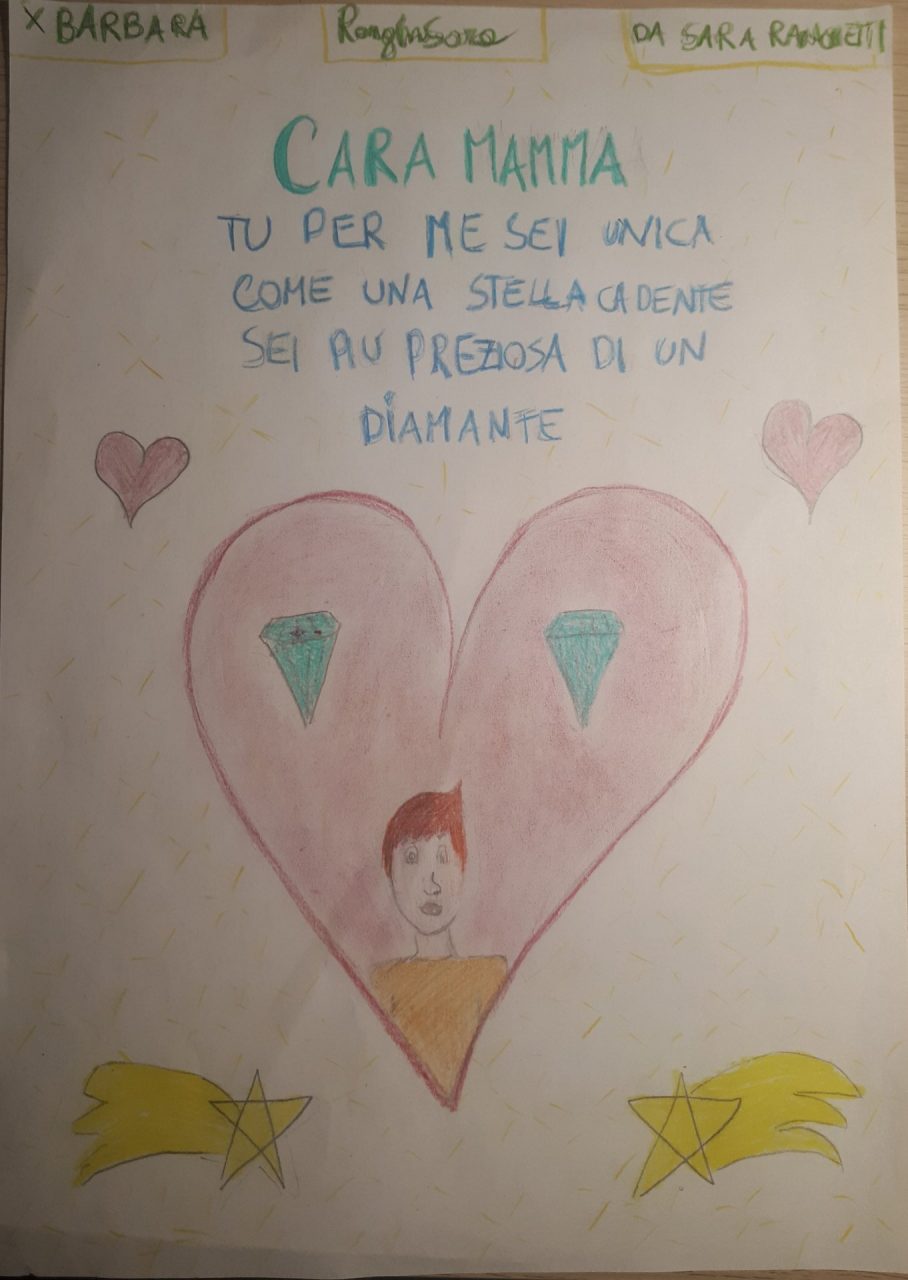 X BARBARA
Sara
DA SARA
CARA MAMMA
TU PER ME SEI UNICA
COME UNA STELLA CADENTE
SEI PIU PREZIOSA DI UN
DIAMANTE